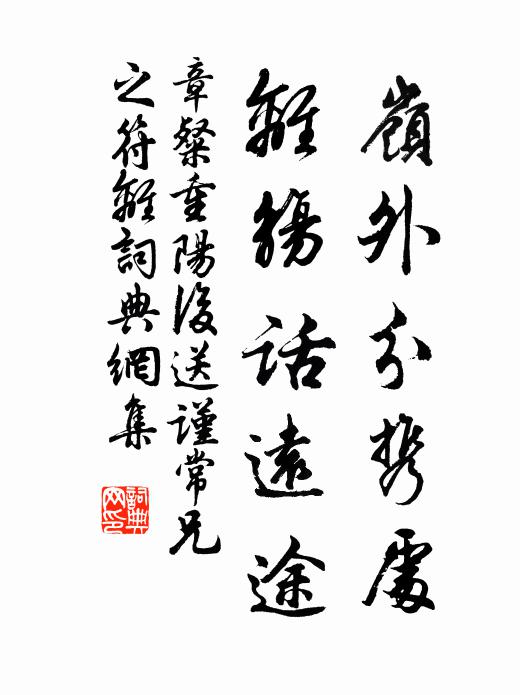 嶺外分携處
離觴話遠途
章粲重陽後送謹常兄
之符離詞典網集
詞典
网印